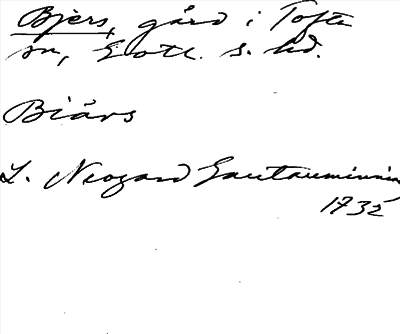 Bjers, gård i Tofta
sn, Gotl. s. hd.
Biärs
L. Neogard Gautauminning
1732